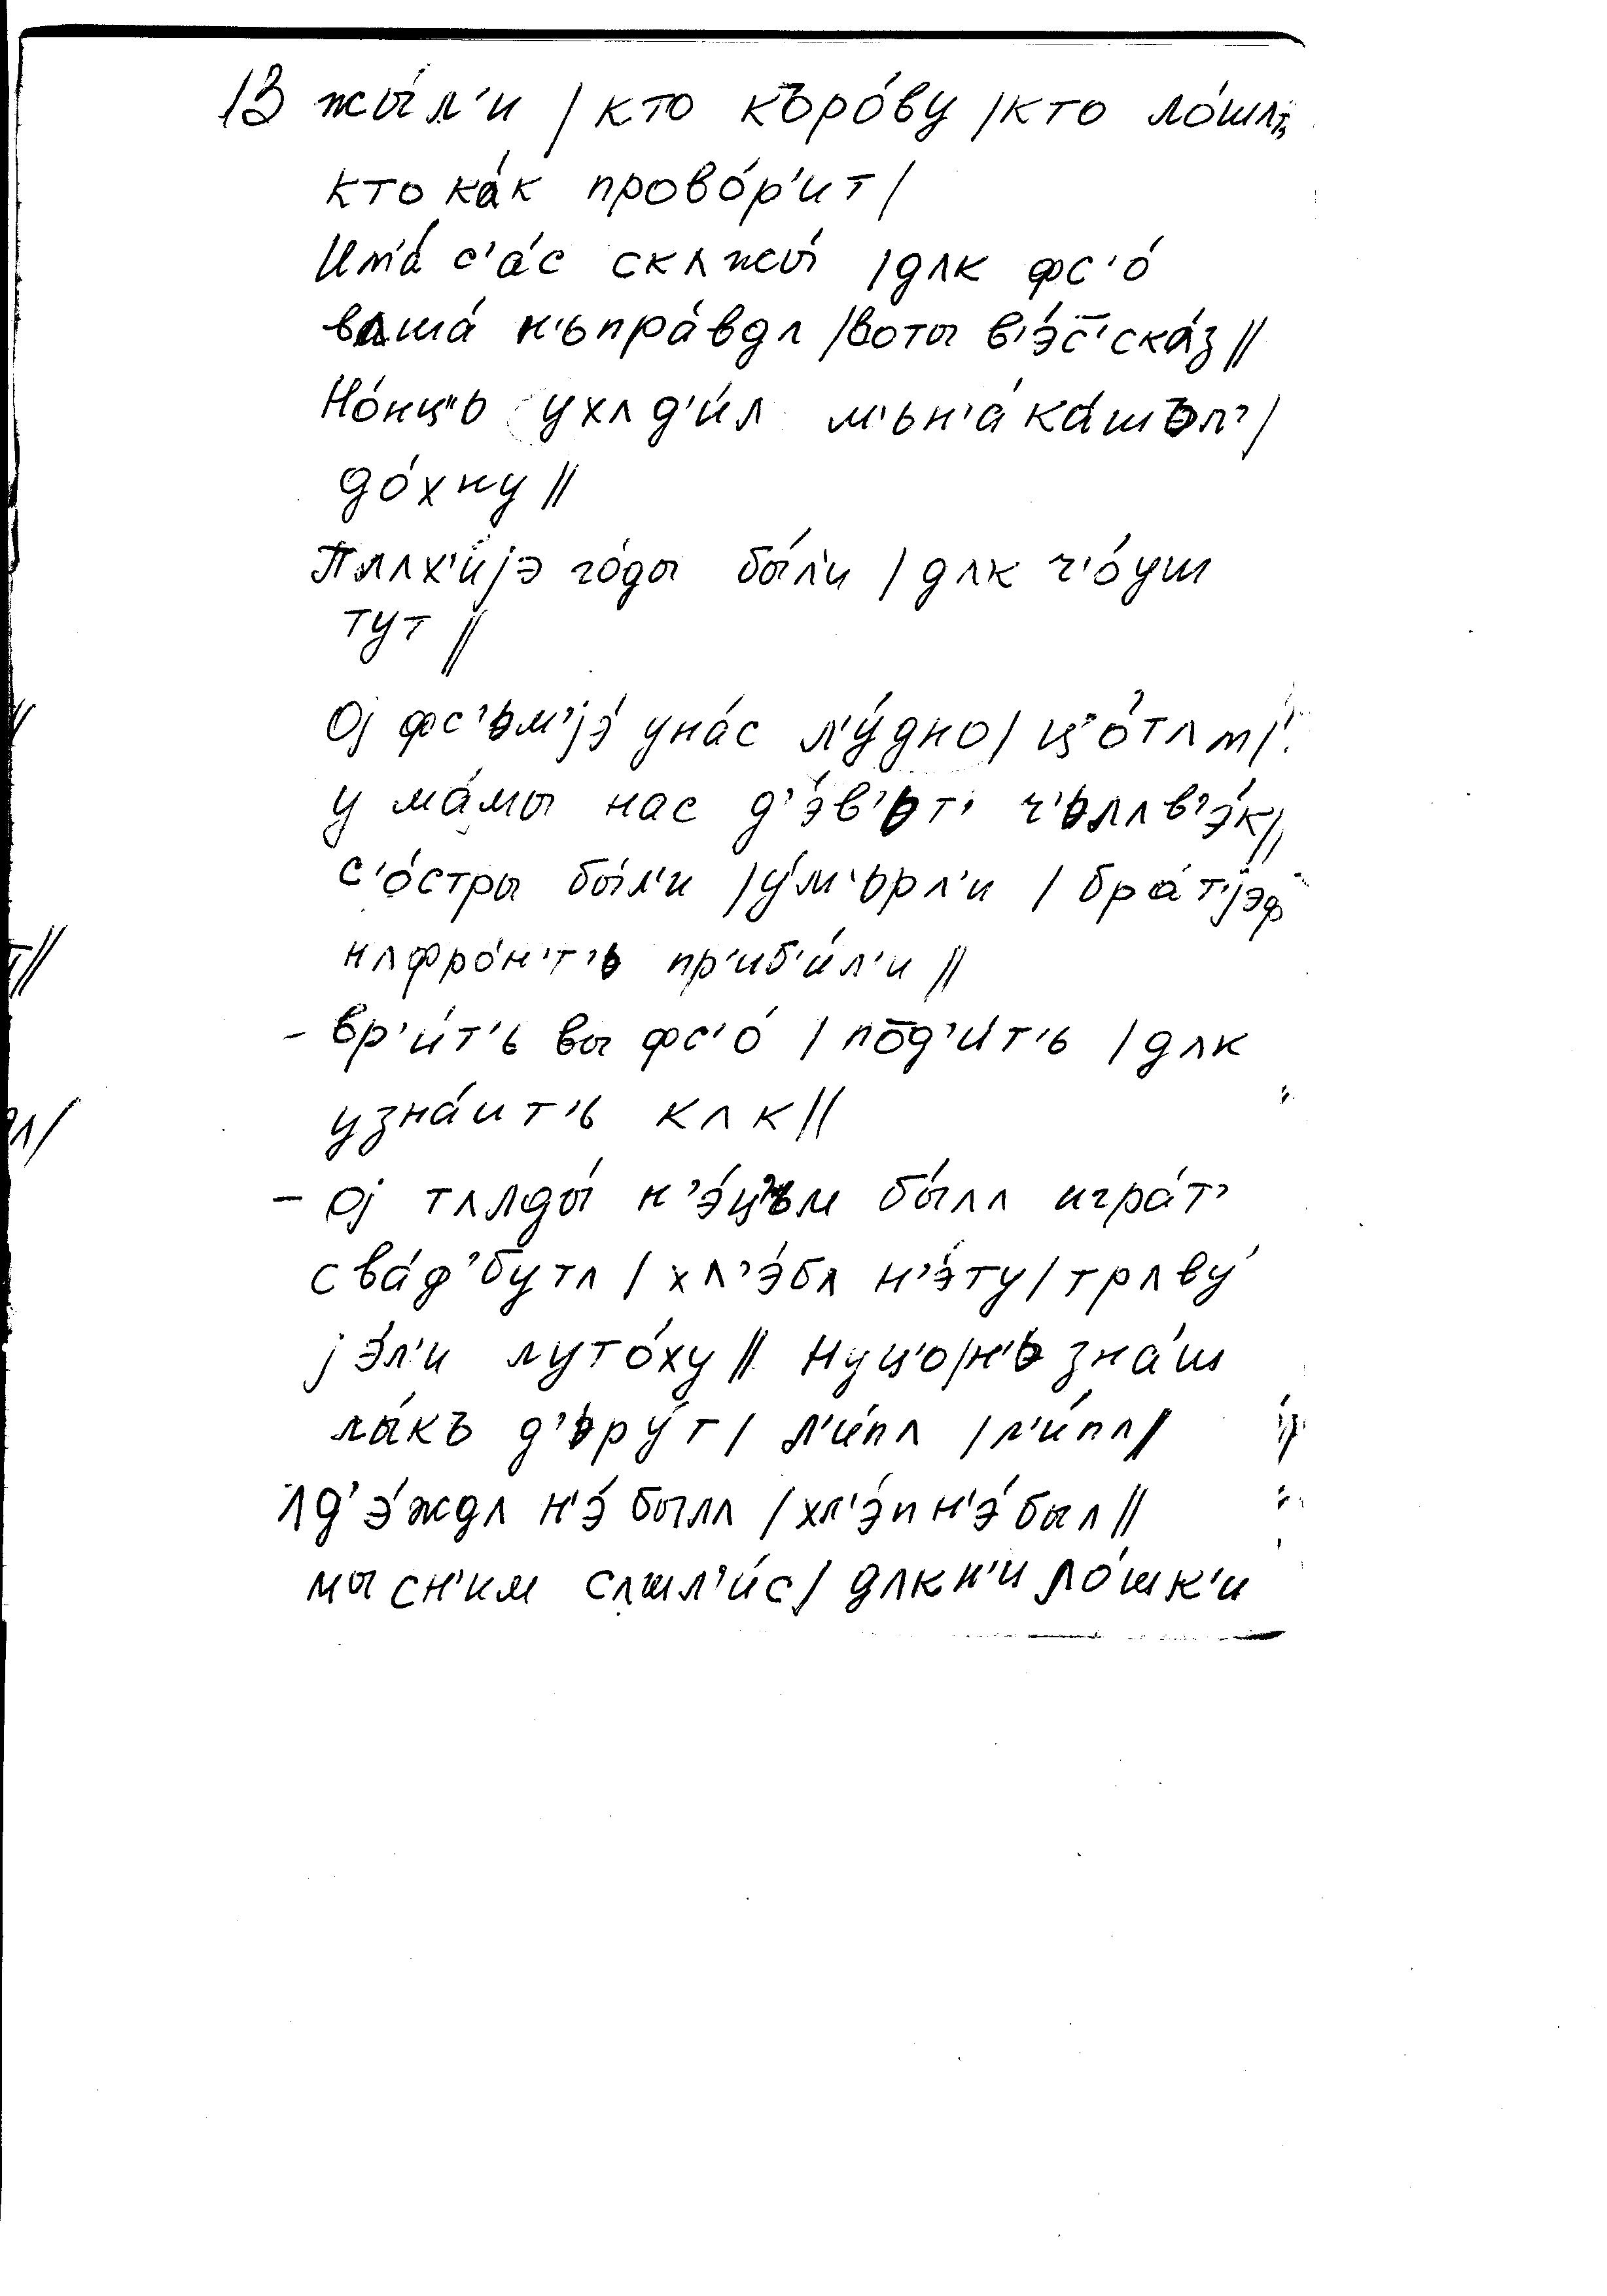 13 жы́л'и / кто къро́ву / кто ло́шʌт'
кто ка́к прово́р'ит /
Ит'а́ с'а́с скʌжы́ / дʌк фс'о́
вʌша́ н'ьпра́вдʌ / воты в'э́с̄'ска́з //
Но́нц"ь ухʌд'и́л м'ьн'а́ ка́шъл' /
до́хну //
Плʌх'и́jэ го́ды бы́л'и / дʌк ч'о́уш
тут //
Оj фс'ьм'jэ́ уна́с л'у́дно / ц"о́тʌм /
у ма́мы нас д'э́в'ьт' ч'ьлʌв'э́к //
с'о́стры бы́л'и / у́м'ьрл'и / бра́т'jэф
нʌфро́н'т'ь пр'иб'и́л'и //
– вр'и́т'ь вы фс'о́ / по̄д'и́т'ь / дʌк
узна́ит'ь кʌк //
– оj тʌлды́ н'э́ц"ьм бы́лʌ игра́т'
сва́д'бутʌ / хл'э́бʌ н'э́ту / трʌву́
jэ́л'и луто́ху // Нуц'о / н'ь зна́ш
лы́къ д'ьру́т / л'и́пʌ / л'и́пʌ //
ʌд'э́ждʌ н'э́ былʌ / хл'э́п н'э́ был //
мы сн'им сʌшл'и́с / дʌкн'и ло́шк'и